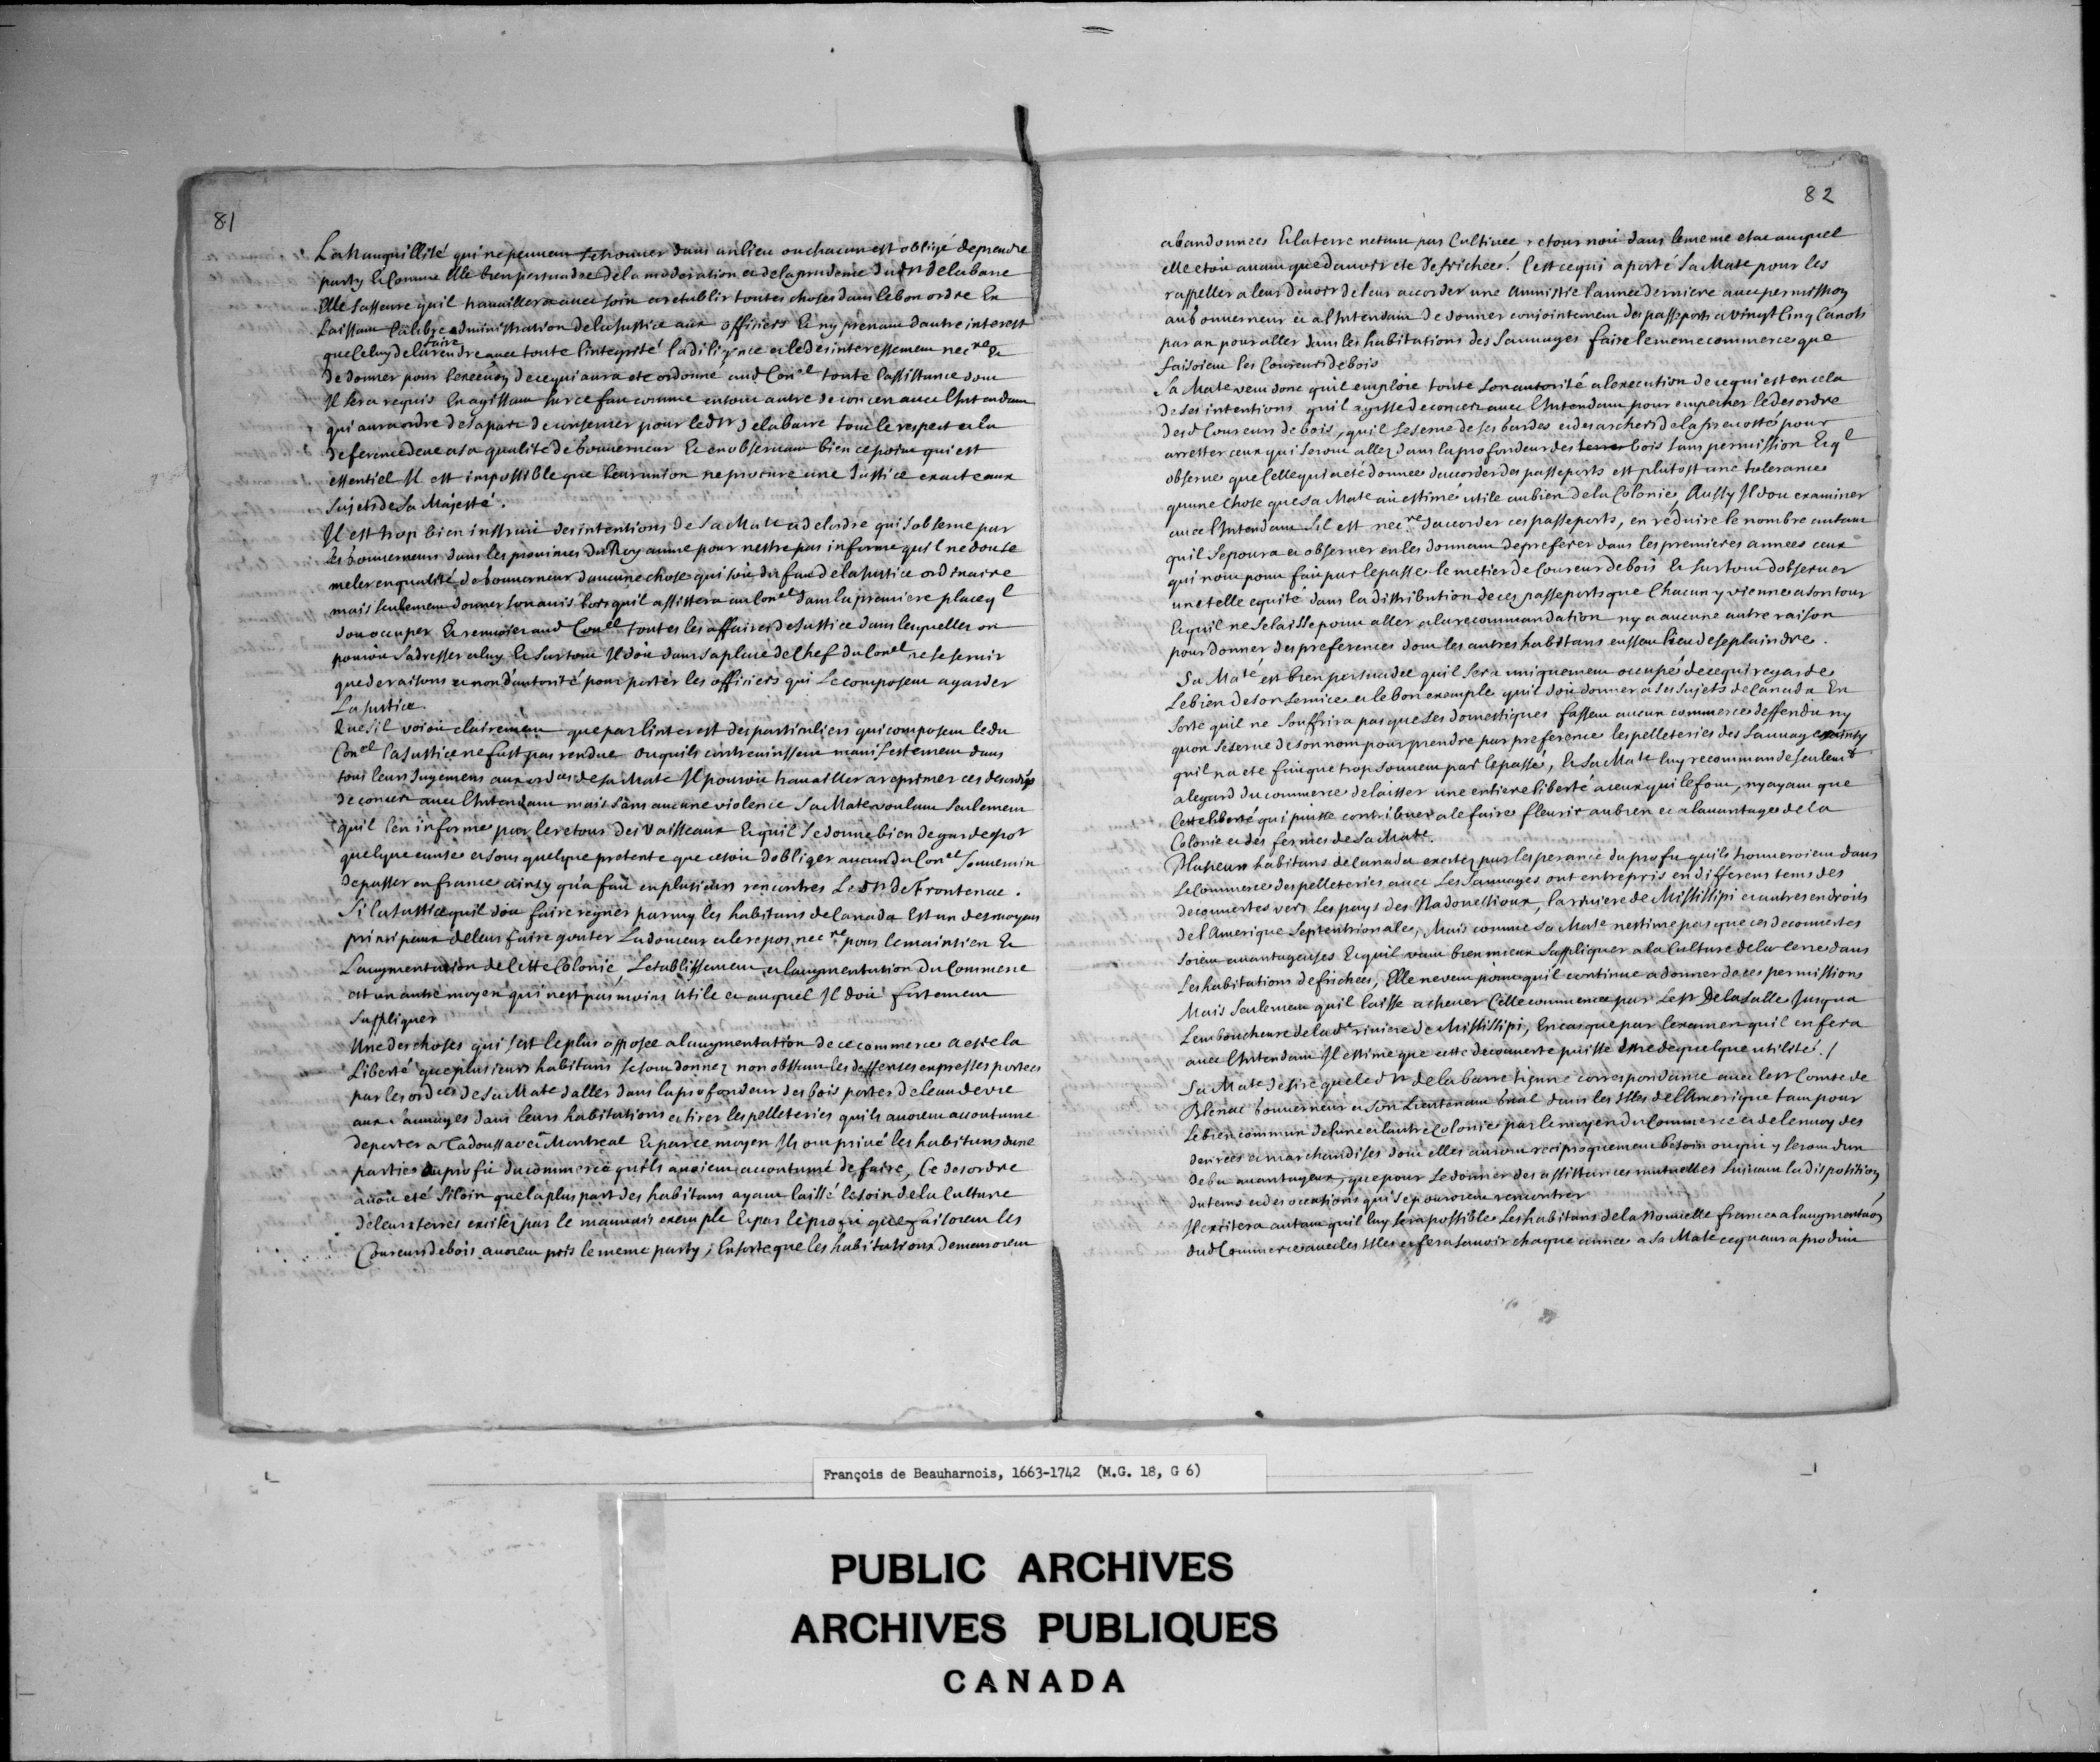 81
La tranquillité qui ne peuvent se trouver dans un lieu ou chacun est obligé de prendre
party Et Comme Elle bien persuadee de la moderation et de la prudence dud Sr de la barre
Elle Sasseure quil travaillera avec soin a restablir toutes choses dans le bon ordre En
Laissant la libre administration de la Justice aux officiers Et ny prenant dautre interest
que Celuy de la faire rendre avec toute lintegrité la diligence et le desinteressement necre Et
de donner pour lexecuon de ce qui aura ete ordonné aud Conel toute lassistance dont
Il sera requis En agissant sur ce fait comme en tout autre de concert avec lIntendant
qui aura ordre de sa part de conserver pour led Sr de la barre tout le respect et la
deference deue a sa qualité de Gouverneur Et en observant bien ce point qui est
essentiel Il est impossible que leur union ne procure une Justice exacte aux
Sujets de Sa Majesté.
Il est trop bien instruit des intentions de Sa Mate et de lordre qui sobserve par
les Gouverneurs dans les provinces du Royaume pour nestre pas informé quil ne doit se
meler en qualité de Gouverneur daucune chose qui soit du fait de la Justice ordinaire
mais seulement donner son avis lors quil assistera au Conel dans la premiere place ql
doit occuper Et renvoier aud Conel toutes les affaires de Justice dans lesquelles on
pouroit sadresser a luy Et Sur tout Il doit dans sa place de Chef du Conel ne se servir
que de raisons et non dautorité pour porter les officiers qui Le composent a garder
La Justice.
Que sil voioit clairement que par linterest des particuliers qui composent led
Conel la Justice ne fust pas rendue ou quils contrevinssent manifestement dans
tout leurs Jugemens aux ordces de Sa Mate Il pouroit travailler a reprimer ces desordres
de concert avec lIntendant mais sans aucune violence Sa Mate voulant seulement
quil len informe par le retour des Vaisseaux Et quil se donne bien de garde por
quelque cause et sous quelque pretexte que ce soit dobliger aucun du Conel Souverain
de passer en france ainsy qua fait en plusieurs rencontres Le Sr de Frontenac.
Si la Justice quil doit faire regner parmy les habitans de Canada Est un des moyens
principaux de leur faire gouter La douceur et le repos necre pour le maintien Et
Laugmentation de Cette Colonie, Letablissement et laugmentation du Commerce
est un autre moyen qui nest pas moins utile et auquel Il doit fortement
sappliquer
Une des choses qui sest le plus opposée a laugmentation de ce commerce a esté la
Liberté que plusieurs habitans se sont donnez non obstant les deffenses expresses portees
par les ordces de Sa Mate daller dans la profondeur des bois porter de leau de vie
aux Sauvages dans leurs habitations et tirer les pelleteries quils avoient accoutumé
de porter a Tadoussac et a Montreal Et par ce moyen Ils ont privé les habitans dune
partie du profit du commerce quils avoient accoutumé de faire, Ce desordre
avoit eté si loin que la plus part des habitans ayant laissé le soin de la Culture
de leurs terres excitez par le mauvais exemple Et par le profit que faisoient les
Coureurs de bois avoient pris le meme party; En sorte que les habitations demeuroient
82
abandonnees Et la terre netant pas Cultivee retournoit dans le meme etat auquel
elle etoit avant que davoir ete defrichée. Cest ce qui a porté Sa Mate pour les
rappeller a leur devoir de leur accorder une Amnistie lannee derniere avec permission
au Gouverneur et a lIntendant de donner conjointement des passeports a vingt Cinq Canots
par an pour aller dans les habitations des Sauvages faire le meme commerce que
faisoient les Coureurs de bois
Sa Mate veut donc quil emploie toute son autorité a lexecution de ce qui est en cela
de Ses intentions quil agisse de concert avec lIntendant pour empecher le desordre
desd Coureurs de bois, quil se serve de ses Gardes et des archers de la prevosté pour
arrester ceux qui seront allez dans la profondeur des terres bois sans permission Et ql
observe que Celle qui a eté donnee daccorder des passeports est plutost une tolerance
quune chose que Sa Mate ait estimé utile au bien de la Colonie, Aussy Il doit examiner
avec lIntendant Sil est necre daccorder ces passeports, en réduire le nombre autant
quil se poura et observer en les donnant de preferer dans les premieres annees ceux
qui nont point fait par le passé le metier de Coureur de bois Et sur tout dobserver
une telle equité dans la distribution de ces passeports que Chacun y vienne a son tour
Et quil ne se laisse point aller a la recommandation ny a aucune autre raison
pour donner des preferences dont les autres habitans eussent lieu de se plaindre.
Sa Maté est bien persuadée quil sera uniquement occupé de ce qui regarde
Le bien de son service et le bon exemple quil doit donner a ses Sujets de Canada En
Sorte quil ne Souffrira pas que Ses domestiques fassent aucun commerce deffendu ny
quon se serve de son nom pour prendre par preference les pelleteries des Sauvages ainsy
quil na ete fait que trop souvent par le passé, Et Sa Mate luy recommande seulemt
a legard du commerce de laisser une entiere liberté a ceux qui le font, ny ayant que
Cette liberté qui puisse contribuer a le faire fleurir au bien et a lavantage de la
Colonie et des fermes de Sa Mate.
Plusieurs habitans de Canada excitez par lesperance du profit quils trouveroient dans
Le Commerce des pelleteries avec Les Sauvages ont entrepris en differens tems des
decouvertes vers Les pays des Nadouessioux, la riviere de Missisipi et autres endroits
de lAmerique Septentrionale, Mais comme Sa Mate nestime pas que ces decouvertes
soient avantageuses Et quil vaut bien mieux Sappliquer a la Culture de la terre dans
Les habitations defrichees, Elle ne veut point quil continue a donner de ces permissions
Mais Seulement quil laisse achever Celle commencée par Le Sr De la Salle Jusqua
Lembouchure de lade riviere de Missisipi, En cas que par lexamen quil en fera
avec lIntendant Il estime que cette decouverte puisse estre de quelque utilité./
Sa Mate desire que led Sr de la barre tienne correspondance avec le Sr Comte de
Blenac Gouverneur et Son Lieutenant Gnal dans les Isles de lAmerique tant pour
Le bien commun de lune et lautre Colonie par le moyen du Commerce et de lenvoy des
denrées et marchandises dont elles auront reciproquement besoin ou qui y seront dun
debit avantageux, que pour Se donner des assistances mutuelles Suivant la disposition
du tems et des occasions qui Se pouroient rencontrer
Il excitera autant quil luy sera possible Les habitans de la Nouvelle france a laugmentaon
dud Commerce avec les Isles et fera savoir chaque année a Sa Maté ce quaura produit
François de Beauharnois, 1663-1742 (M.G. 18, G 6)
PUBLIC ARCHIVES
ARCHIVES PUBLIQUES
CANADA